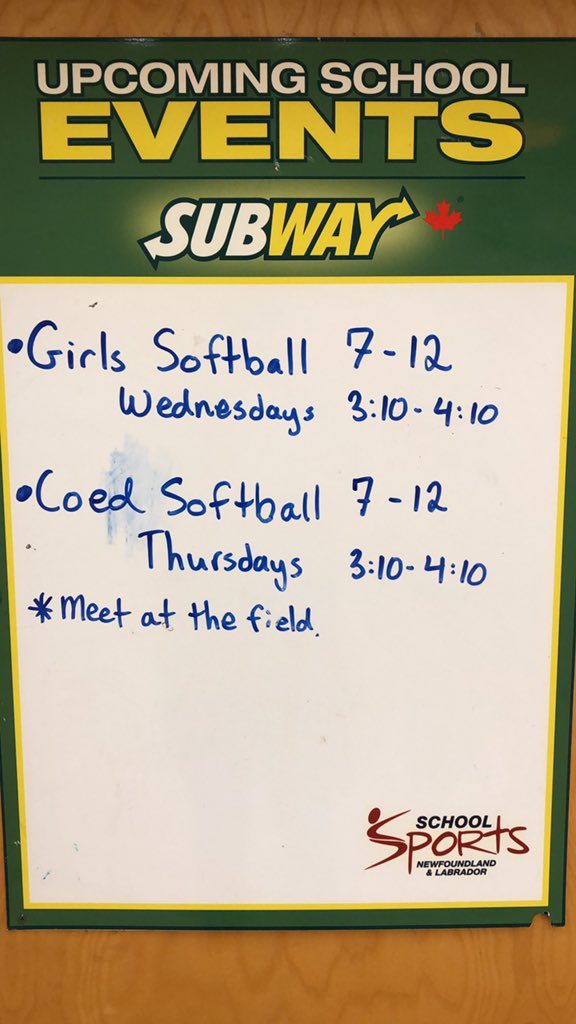 UPCOMING SCHOOL
EVENTS
SUBWAY
•Girls Softball 7-12
Wednesdays 3:10-4:10
•Coed Softball 7-12
Thursdays 3:10-4:10
*Meet at the field.
SCHOOL
SPORTS
NEWFOUNDLAND
& LABRADOR